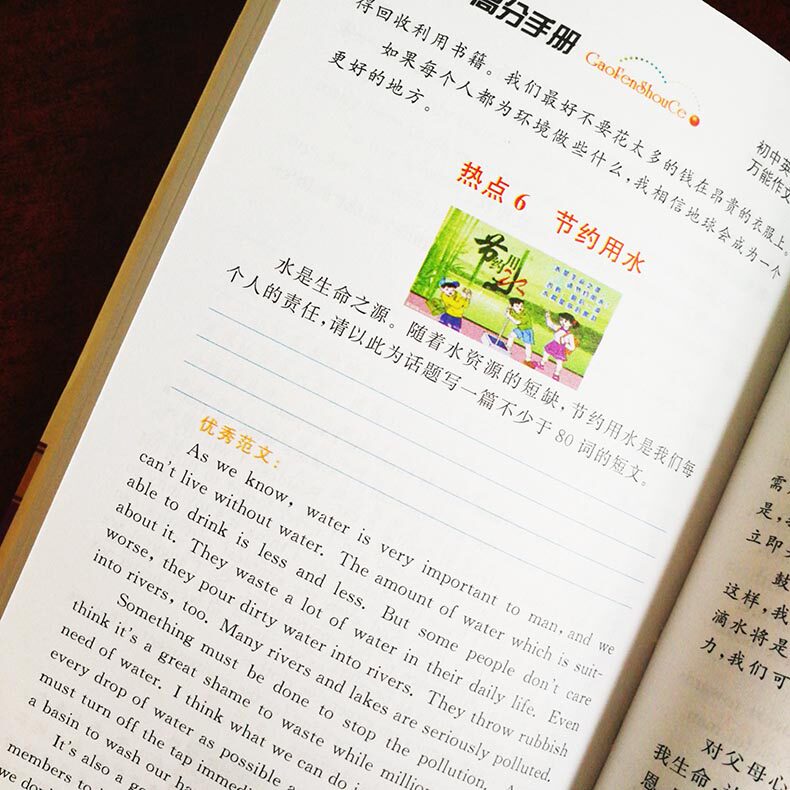 高分手册
GaoFenShouCe
初中英
万能作文
得回收利用书籍。我们最好不要花太多的钱在昂贵的衣服上。
如果每个人都为环境做些什么,我相信地球会成为一个
更好的地方。
热点6 节约用水
节约用水
水是生命之源。随着水资源的短缺,节约用水是我们每
个人的责任,请以此为话题写一篇不少于80词的短文。
优秀范文:
As we know, water is very important to man, and we
can't live without water. The amount of water which is suit-
able to drink is less and less. But some people don't care
about it. They waste a lot of water in their daily life. Even
worse, they pour dirty water into rivers. They throw rubbish
into rivers, too. Many rivers and lakes are seriously polluted.
Something must be done to stop the pollution.
think it's a great shame to waste while million
need of water. I think what we can do i
every drop of water as possible a
must turn off the tap immed
a basin to wash our ha
It's also a g
members to
we don
需
是,
立即
鼓
这样,我
滴水将是
力,我们可
对父母心
我生命,
恩